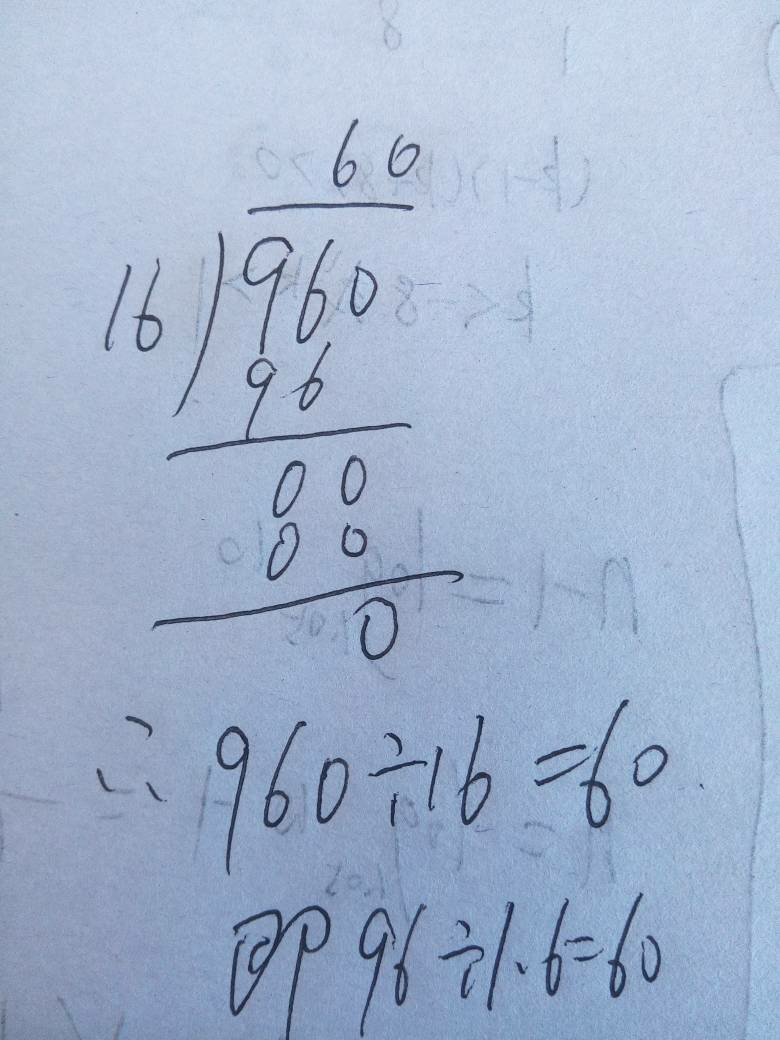 60
16)960
96
00
00
0
∴ 960÷16=60.
即 96÷1.6=60